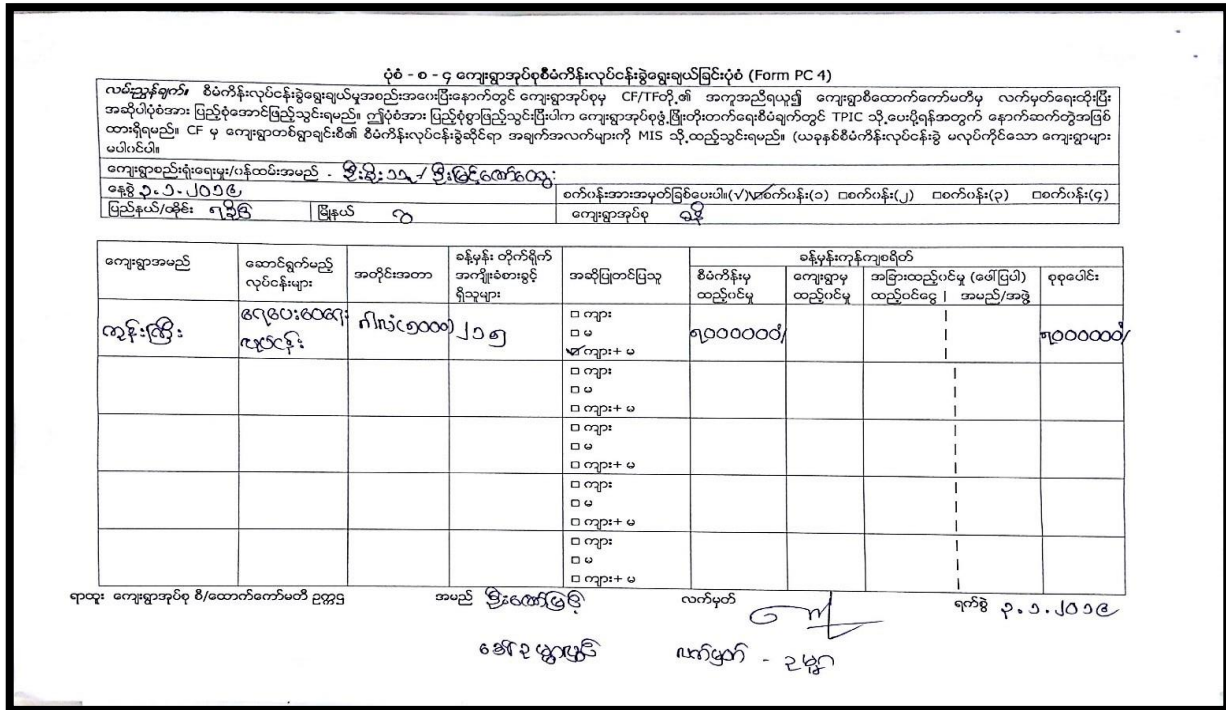 ပုံစံ - စ - ၄ ကျေးရွာအုပ်စုစီမံကိန်းလုပ်ငန်းခွဲရွေးချယ်ခြင်းပုံစံ (Form PC 4)
လမ်းညွှန်ချက်။ စီမံကိန်းလုပ်ငန်းခွဲရွေးချယ်မှုအစည်းအဝေးပြီးနောက်တွင် ကျေးရွာအုပ်စုမှ CF/TFတို့၏ အကူအညီရယူ၍ ကျေးရွာစီထောက်ကော်မတီမှ လက်မှတ်ရေးထိုးပြီး
အဆိုပါပုံစံအား ပြည့်စုံအောင်ဖြည့်သွင်းရမည်။ ဤပုံစံအား ပြည့်စုံစွာဖြည့်သွင်းပြီးပါက ကျေးရွာအုပ်စုဖွံ့ဖြိုးတိုးတက်ရေးစီမံချက်တွင် TPIC သို့ပေးပို့ရန်အတွက် နောက်ဆက်တွဲအဖြစ်
ထားရှိရမည်။ CF မှ ကျေးရွာတစ်ရွာချင်းစီ၏ စီမံကိန်းလုပ်ငန်းခွဲဆိုင်ရာ အချက်အလက်များကို MIS သို့ထည့်သွင်းရမည်။ (ယခုနှစ်စီမံကိန်းလုပ်ငန်းခွဲ မလုပ်ကိုင်သော ကျေးရွာများ
မပါဝင်ပါ။
ကျေးရွာစည်းရုံးရေးမှူး/ဝန်ထမ်းအမည် -
နေ့စွဲ ၃.၁.၂၀၁၉ စက်ဝန်းအားအမှတ်ခြစ်ပေးပါ။(√) ☑စက်ဝန်း(၁) □စက်ဝန်း(၂) □စက်ဝန်း(၃) □စက်ဝန်း(၄)
ပြည်နယ်/တိုင်း ရခိုင် မြို့နယ် ဂွ ကျေးရွာအုပ်စု
ကျေးရွာအမည် ဆောင်ရွက်မည့် လုပ်ငန်းများ အတိုင်းအတာ ခန့်မှန်း တိုက်ရိုက် အကျိုးခံစားခွင့် ရှိသူများ အဆိုပြုတင်ပြသူ ခန့်မှန်းကုန်ကျစရိတ်
စီမံကိန်းမှ ထည့်ဝင်မှု ကျေးရွာမှ ထည့်ဝင်မှု အခြားထည့်ဝင်မှု (ဖေါ်ပြပါ) ထည့်ဝင်ငွေ | အမည်/အဖွဲ့ စုစုပေါင်း
ကျွန်းကြီး ရေပေးဝေရေး လုပ်ငန်း ဂါလံ(၅၀၀၀) ၂၁၅
□ ကျား
□ မ
☑ ကျား+ မ
ရ၀၀၀၀၀၀/ ရ၀၀၀၀၀၀/
□ ကျား
□ မ
□ ကျား+ မ
□ ကျား
□ မ
□ ကျား+ မ
□ ကျား
□ မ
□ ကျား+ မ
□ ကျား
□ မ
□ ကျား+ မ
ရာထူး ကျေးရွာအုပ်စု စီ/ထောက်ကော်မတီ ဥက္ကဌ အမည် ဦးဇော်မြင့် လက်မှတ် ရက်စွဲ ၃.၁.၂၀၁၉
လက်မှတ် -